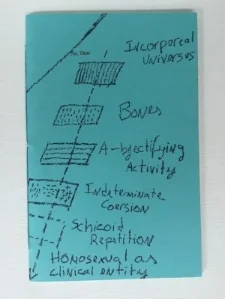 Incorporeal
Universes
Bones
A-bjectifying
Activity
Indeterminate
Coersion
Schizoid
Repitition
Homosexual as
clinical entity